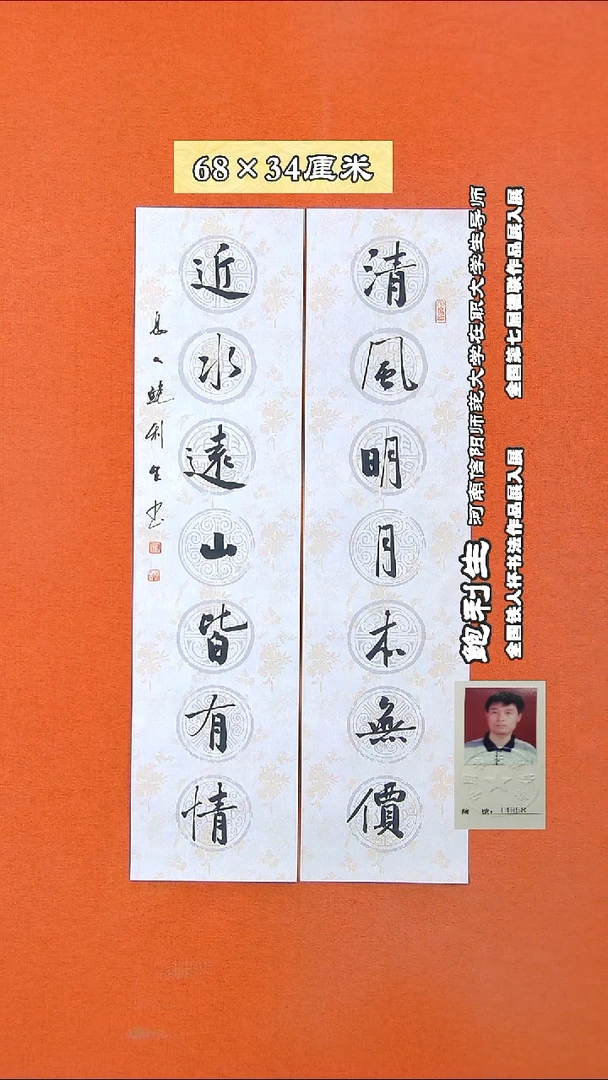 68×34厘米
清風明月本無價
近水遠山皆有情
鲍利生书
鲍利生 河南信阳师范大学在职大学生导师
全国铁人杯书法作品展入展 全国第七届楹联作品展入展